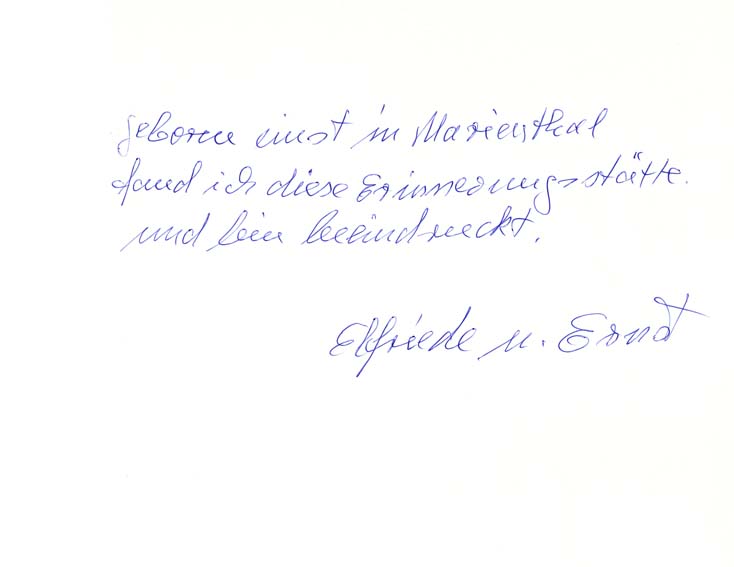 geboren einst in Marienthal
fand ich diese Erinnerungsstätte.
und bin beeindruckt.
Elfriede u. Ernst